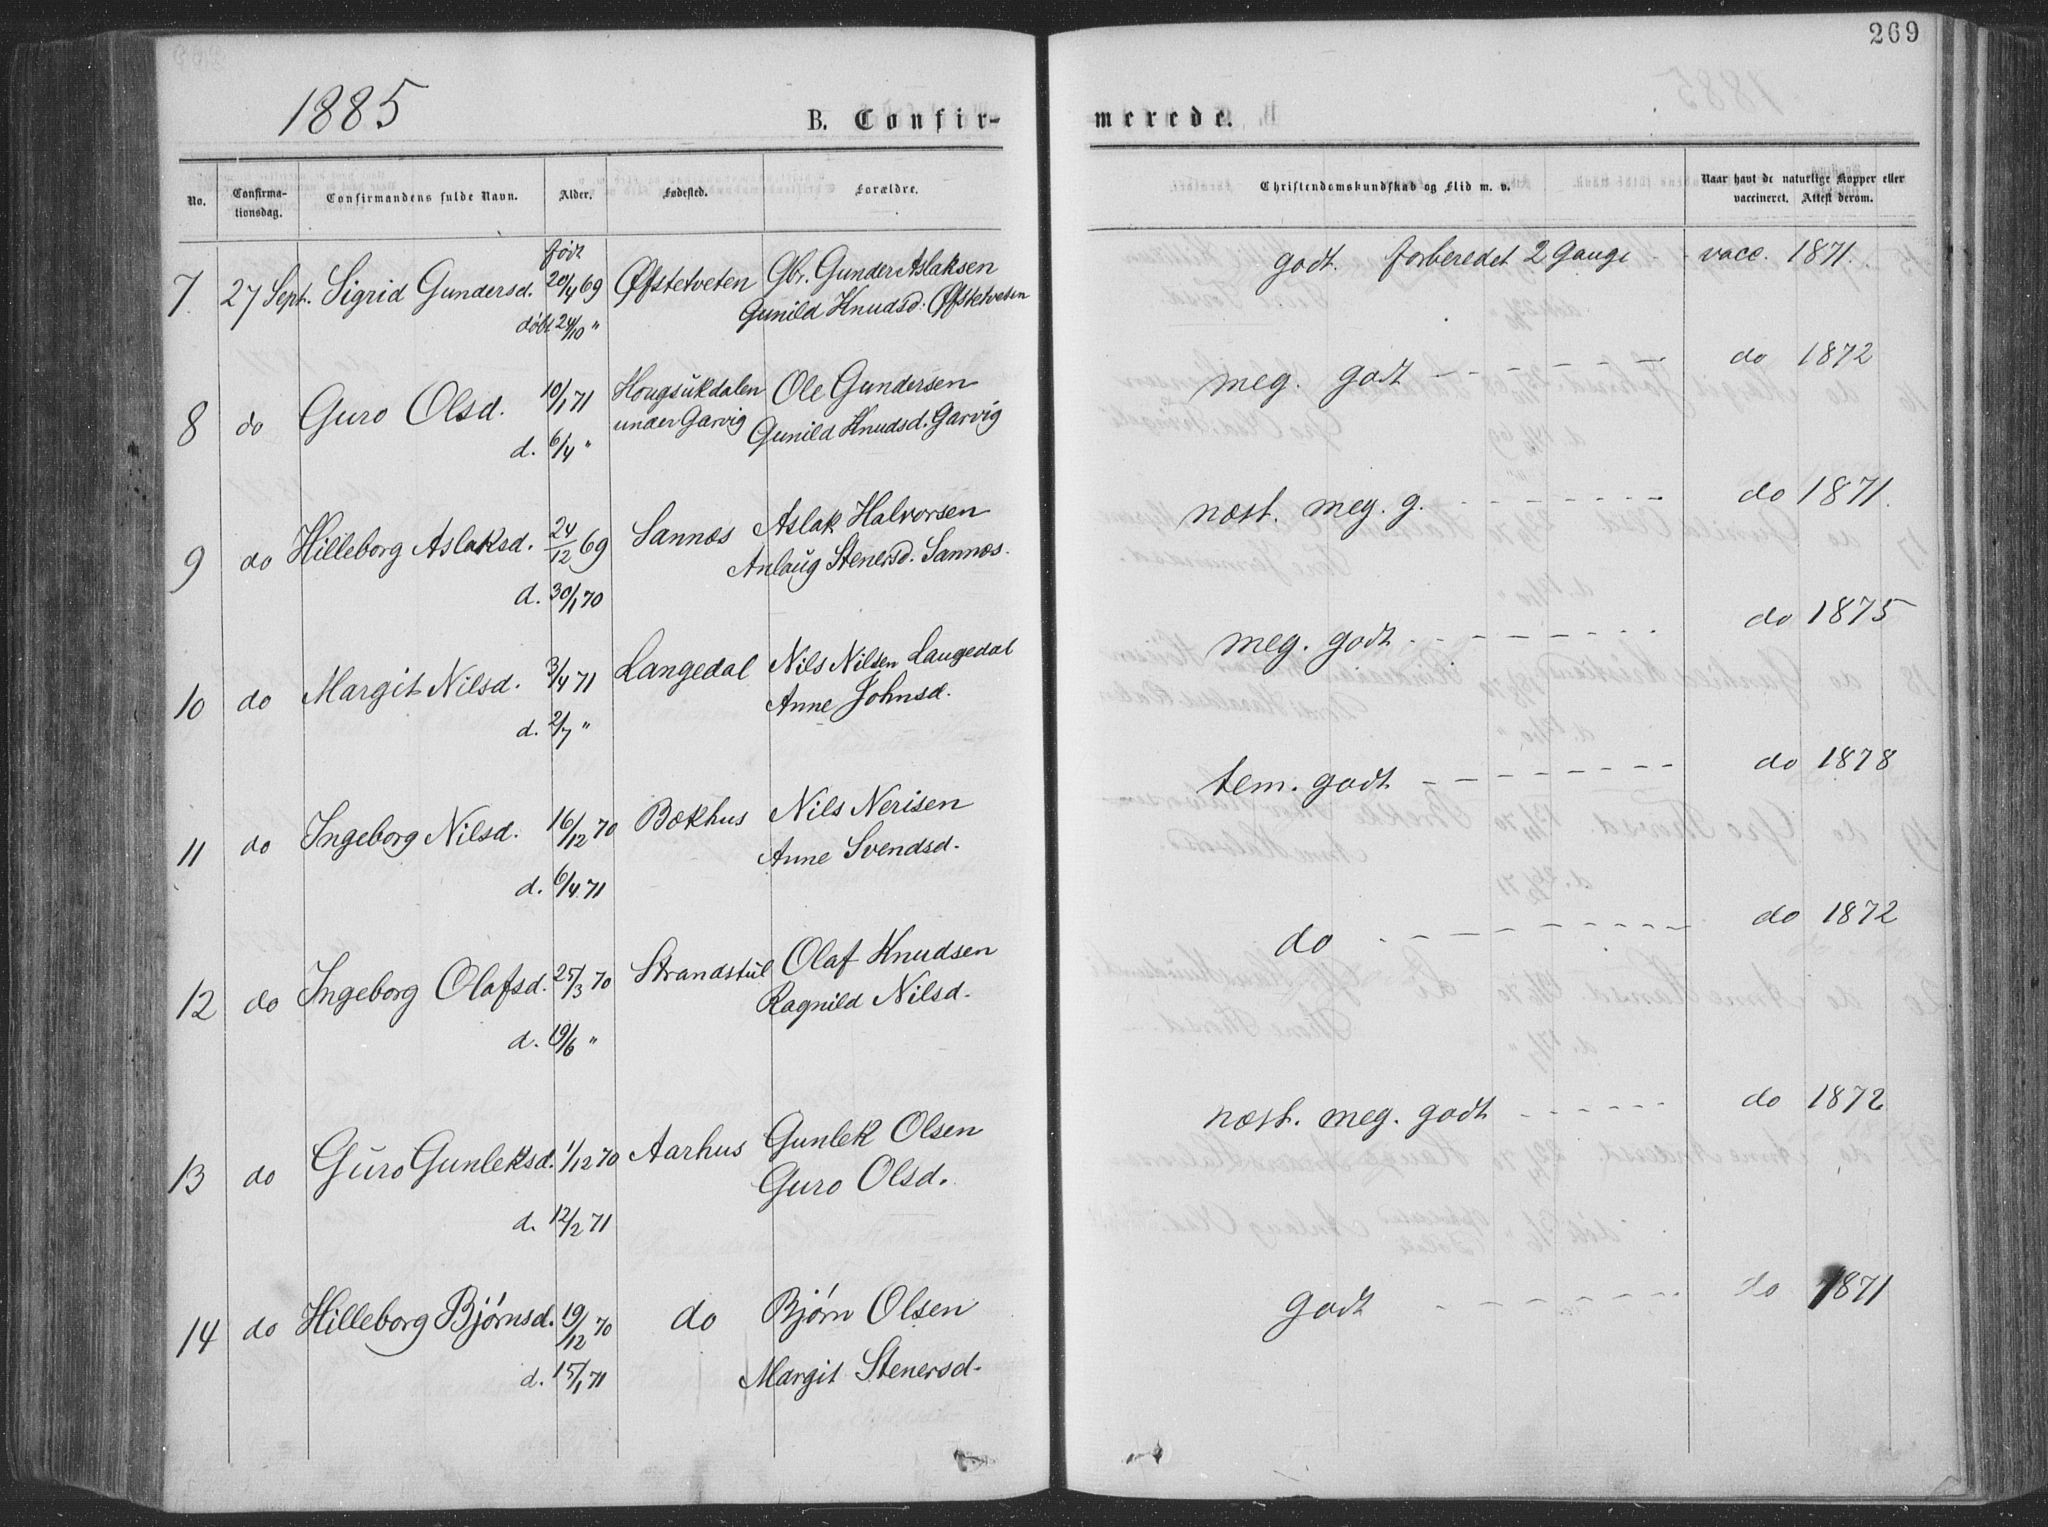 269
1885
B. Confir-
merede.
No.
Confirma-
tionsdag.
Confirmandens fulde Navn.
Alder.
Fødested.
Forældre.
Christendomskundskab og Flid m. v.
Naar havt de naturlige Kopper eller
vaccineret. Attest derom.
7. 27 Sept. Sigrid Gundersd. født 20/4 69 Øfstetveten Gbr. Gunder Aslaksen godt. forberedet 2 Gange vacc. 1871.
døbt 24/10 " Gunild Knudsd. Øfstetveten
8 do Guro Olsd. 10/1 71 Hougsukdalen Ole Gundersen meg. godt do 1872
under Garvig Gunild Knudsd. Garvig
d. 6/4 "
9 do Hilleborg Aslaksd. 24/12 69 Sannæs Aslak Halvorsen næst. meg. g. do 1871.
Anlaug Stenersd. Sannæs.
d. 30/1 70
10 do Margit Nilsd. 3/4 71 Langedal Nils Nilsen Langedal meg. godt. do 1875
Anne Johnsd.
d. 2/7 "
11 do Ingeborg Nilsd. 16/12 70 Bækhus Nils Nerisen tem. godt do 1878
Anne Svendsd.
d. 6/4 71
12 do Ingeborg Olafsd. 25/3 70 Strandstul Olaf Knudsen do do 1872
Ragnild Nilsd.
d. 19/6 "
13 do Guro Gunleksd. 1/12 70 Aarhus Gunlek Olsen næst. meg. godt do 1872
Guro Olsd.
d. 12/2 71
14 do Hilleborg Bjørnsd. 19/12 70 do Bjørn Olsen godt do 1871
d. 15/1 71 Margit Stenersd.